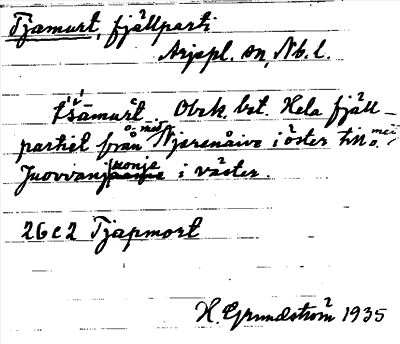 Tjamurt, fjällparti
Arjepl. sn, Nb. l.
t'šāmurt. Obek. bet. Hela fjäll-
partiet från o. med Njerenåive i öster till o. med
Juovvanjuonje i väster.
26e2 Tjapmort
H. Grundström 1935